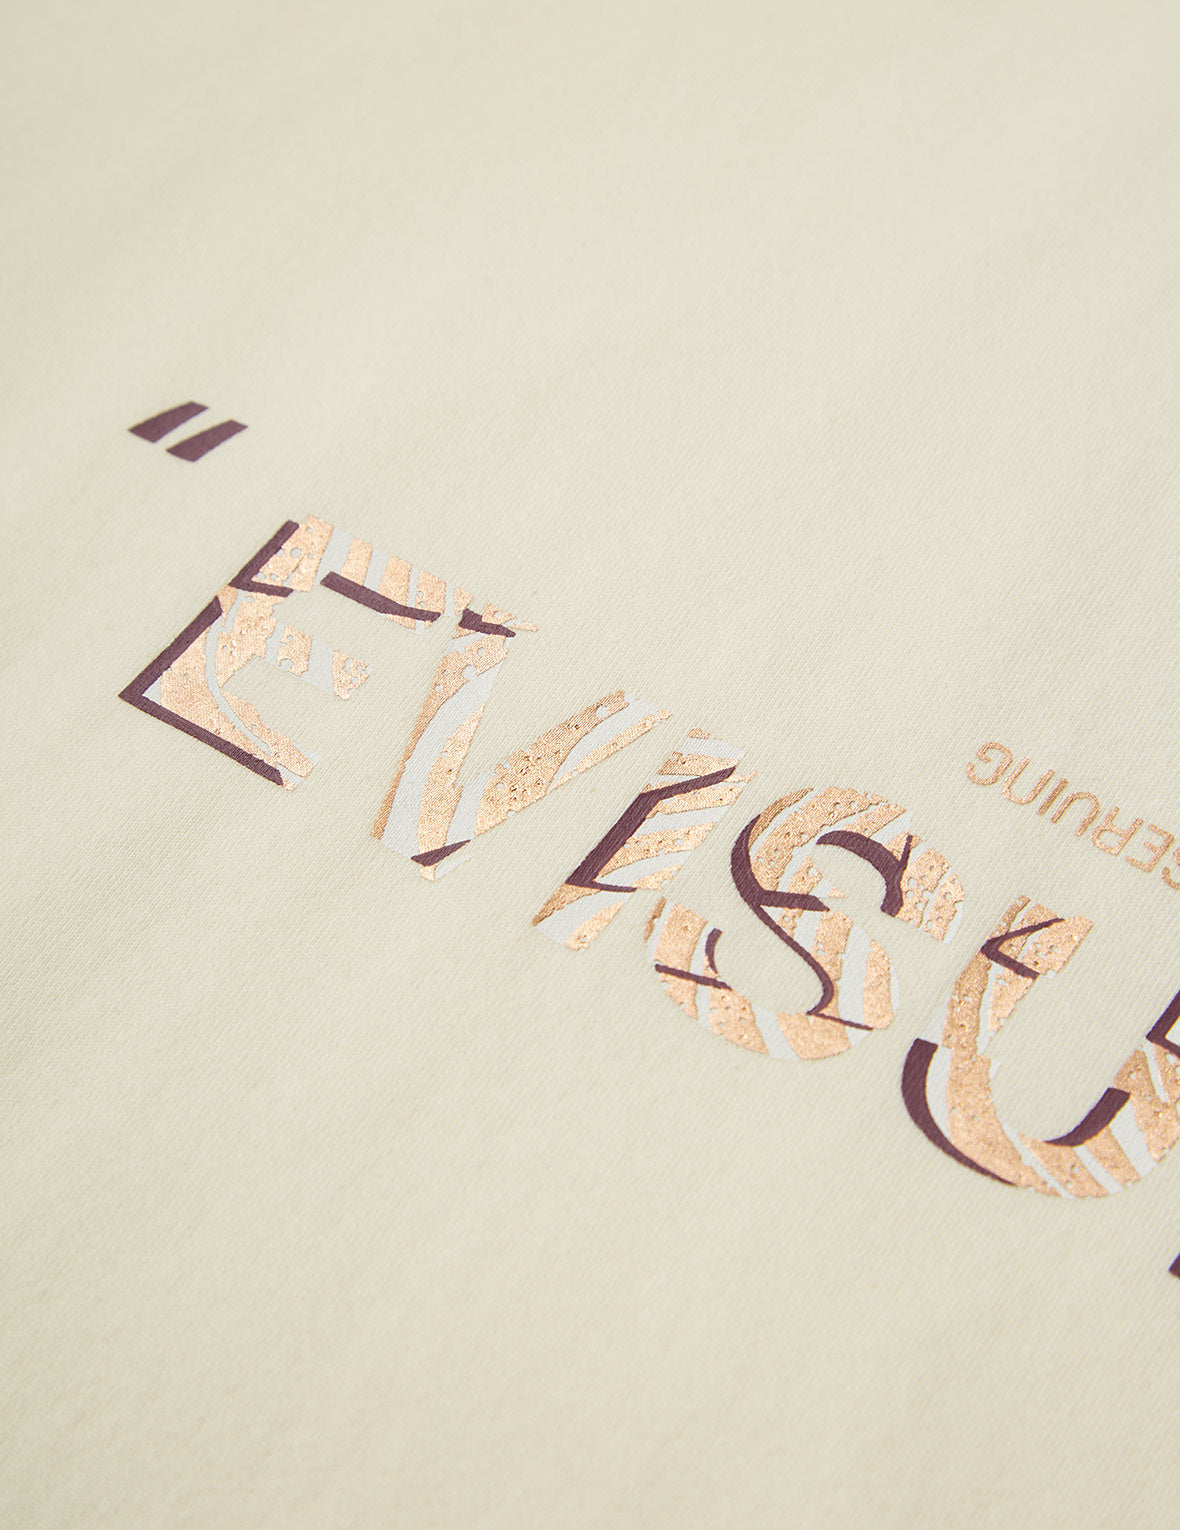 SERVING
"EVISU